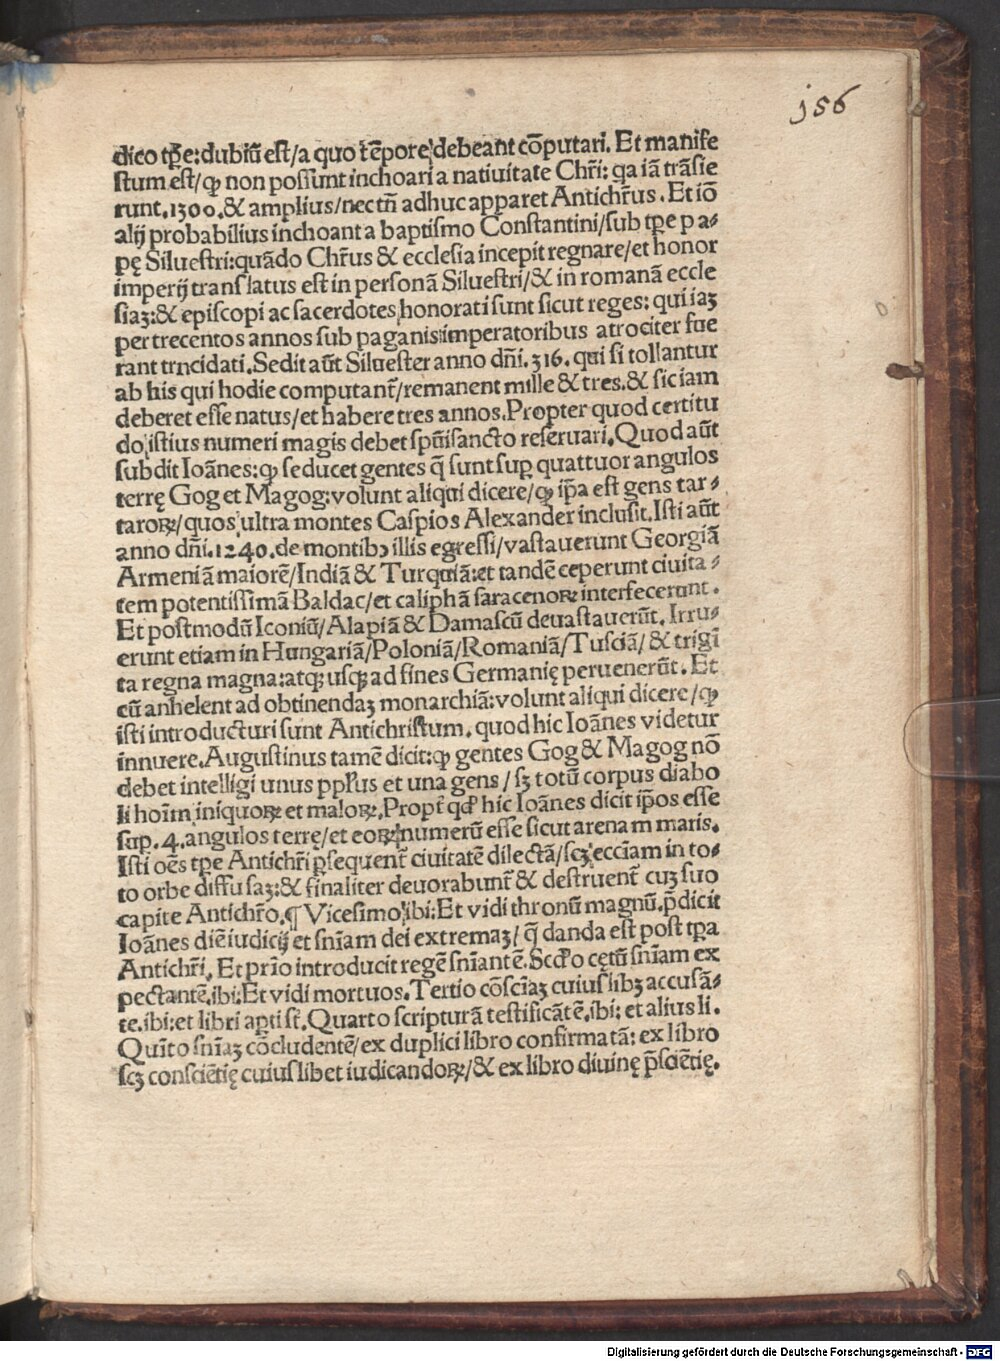 156
dico tp̄e: dubiū est/a quo tēpore debeant cōputari. Et manife
stum est/ꝙ non possunt inchoari a natiuitate Chr̄i: qa iā trāsie
runt.1300.& amplius/nec tn̄ adhuc apparet Antichr̄us. Et iō
alij probabilius inchoant a baptismo Constantini/sub tp̄e pa-
pę Siluestri: quādo Chr̄us & ecclesia incepit regnare/et honor
imperij translatus est in personā Siluestri/& in romanā eccle
siaȝ: & episcopi ac sacerdotes honorati sunt sicut reges: qui iaȝ
per trecentos annos sub paganis imperatoribus atrociter fue
rant trucidati. Sedit aūt Siluester anno dn̄i.316. qui si tollantur
ab his qui hodie computant̄/remanent mille & tres. & sic iam
deberet esse natus/et habere tres annos. Propter quod certitu
do istius numeri magis debet spūisancto reseruari. Quod aūt
subdit Ioānes: ꝙ seducet gentes q̄ sunt suꝑ quattuor angulos
terrę Gog et Magog: volunt aliqui dicere/ꝙ ip̄a est gens tar-
taroꝝ/quos ultra montes Caspios Alexander inclusit. Isti aūt
anno dn̄i.1240.de montibꝰ illis egressi/vastauerunt Georgiā
Armeniā maiorē/Indiā & Turquiā: et tandē ceperunt ciuita-
tem potentissimā Baldac/et caliphā saracenoꝝ interfecerunt.
Et postmodū Iconiū/Alapiā & Damascū deuastauerūt. Irru-
erunt etiam in Hungariā/Poloniā/Romaniā/Tusciā/& trigī
ta regna magna: atqꝫ usqꝫ ad fines Germanię peruenerūt. Et
cū anhelent ad obtinendaȝ monarchiā: volunt aliqui dicere/ꝙ
isti introducturi sunt Antichristum. quod hic Ioānes videtur
innuere. Augustinus tamē dicit: ꝙ gentes Gog & Magog nō
debet intelligi unus pp̄lus et una gens/sȝ totū corpus diabo
li hoīm iniquoꝝ et maloꝝ. Propt̄ qđ hic Ioānes dicit ip̄os esse
suꝑ.4.angulos terrę/et eoꝝ numerū esse sicut arenam maris.
Isti oēs tp̄e Antichr̄i ꝑsequent̄ ciuitatē dilectā/scȝ ecciam in to-
to orbe diffusaȝ: & finaliter deuorabunt̄ & destruent̄ cuȝ suo
capite Antichr̄o. ¶ Vicesimo ibi: Et vidi thronū magnū. p̄dicit
Ioānes diē iudicij et sn̄iam dei extremaȝ/q̄ danda est post tꝑa
Antichr̄i. Et prīo introducit regē sn̄iantē. Scđo cętū sn̄iam ex
pectantē. ibi: Et vidi mortuos. Tertio cōsciaȝ cuiuslibȝ accusā-
te. ibi: et libri apti st̄. Quarto scripturā testificātē. ibi: et alius li.
Quīto sn̄iaȝ cōcludentē/ex duplici libro confirmatā: ex libro
scȝ consciētię cuiuslibet iudicandoꝝ/& ex libro diuinę p̄sciētię.
Digitalisierung gefördert durch die Deutsche Forschungsgemeinschaft - DFG